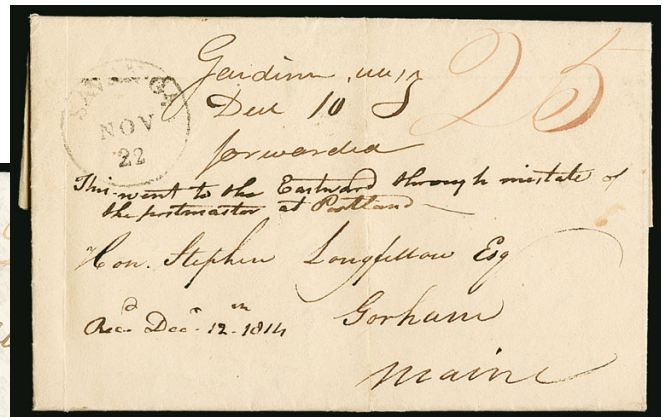 SAV. GA
NOV
22
25
Dec 10
forwarded
This went to the Eastward through mistake of
the postmaster at Portland
Hon. Stephen Longfellow Esq
Gorham
Maine
Recd. Decr. 12th 1814